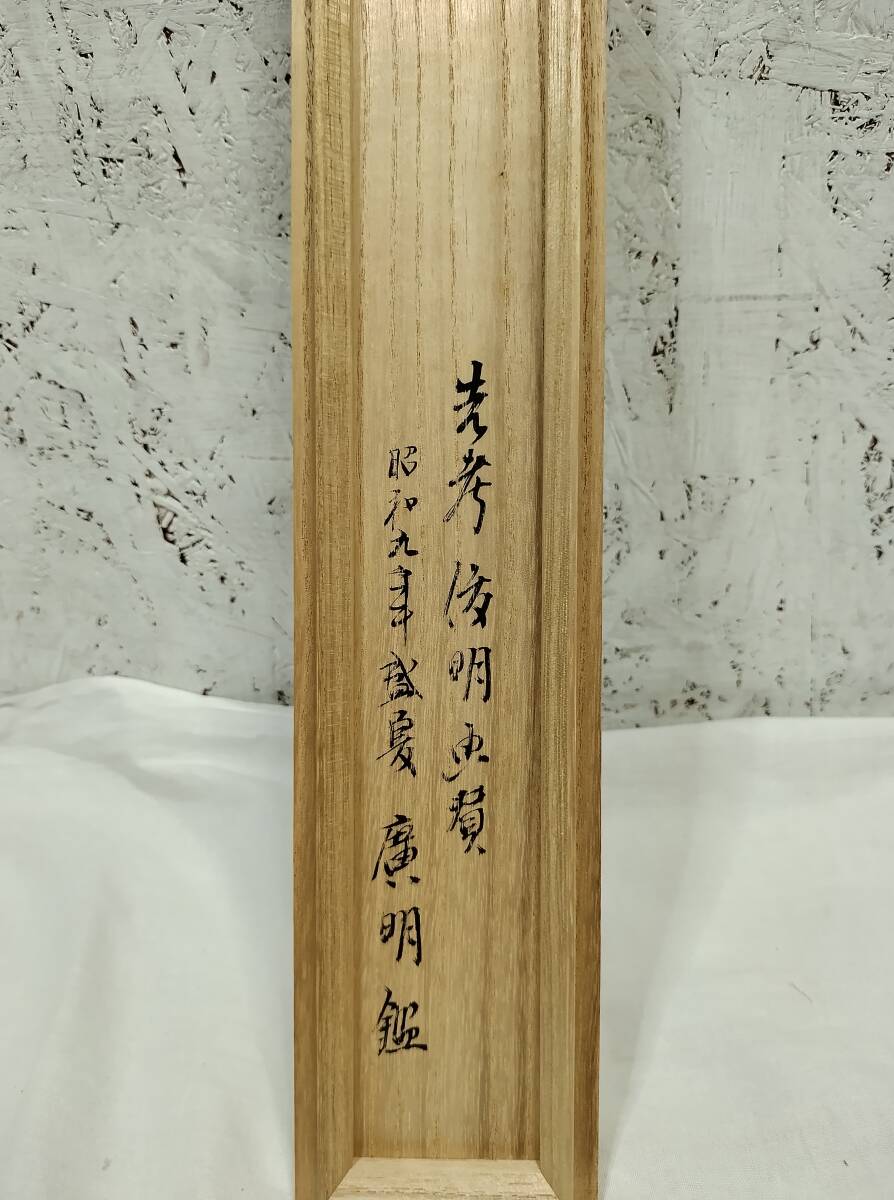 先考俊明画賛
昭和九年盛夏 廣明鑑